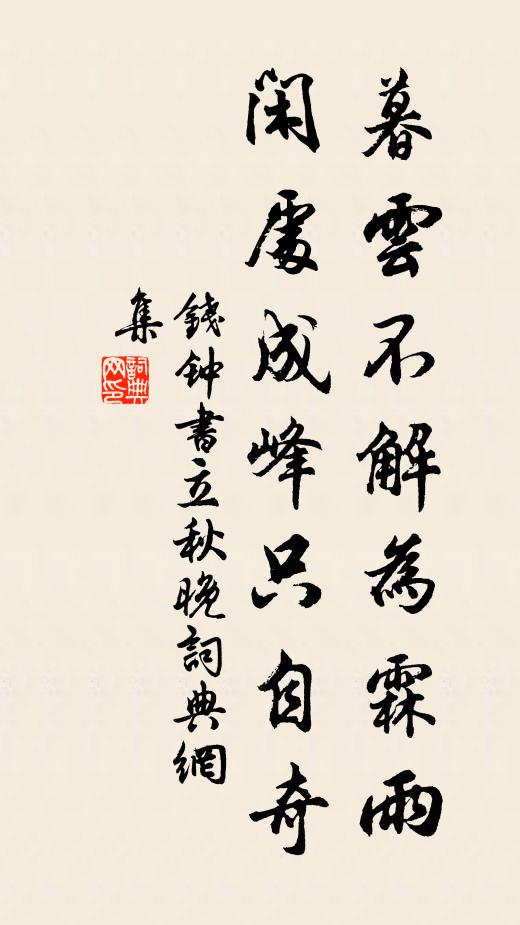 暮雲不解為霖雨
閑處成峰只自奇
錢钟書立秋晚詞典網
集
詞典
网印